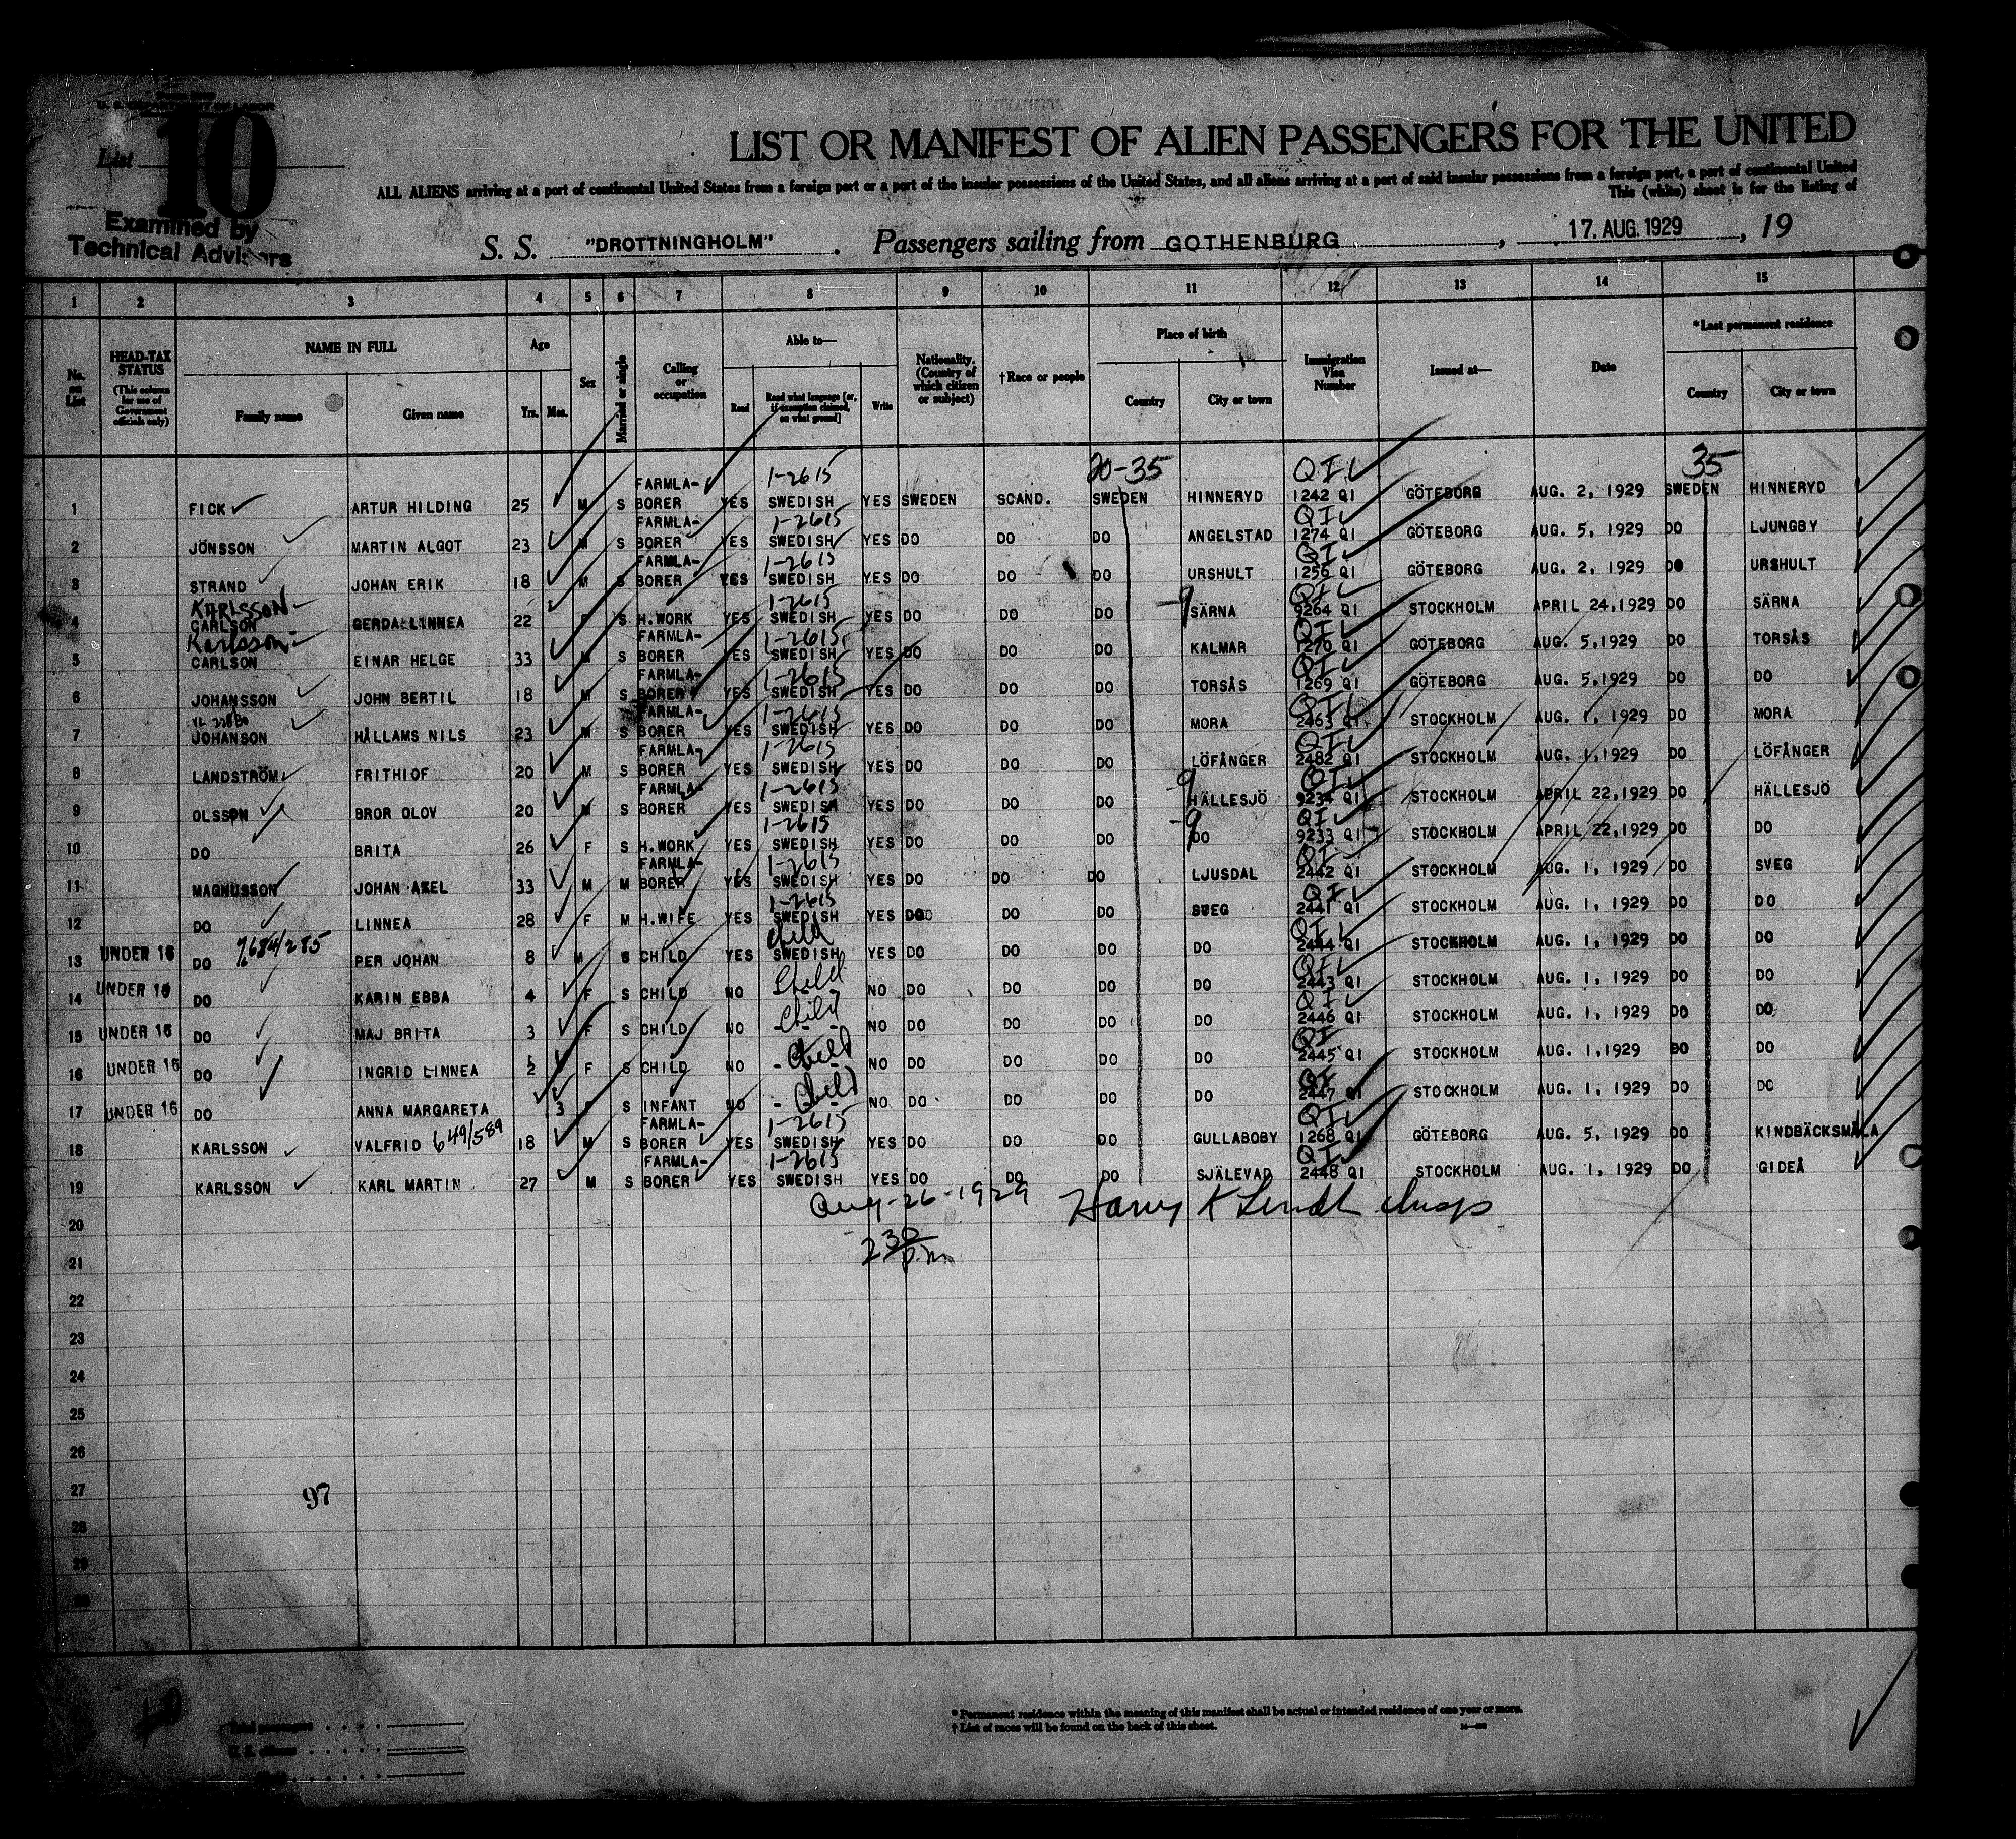 U. S. DEPARTMENT OF LABOR
List 10
Examined by
Technical Advisors
LIST OR MANIFEST OF ALIEN PASSENGERS FOR THE UNITED
ALL ALIENS arriving at a port of continental United States from a foreign port or a port of the insular possessions of the United States, and all aliens arriving at a port of said insular possessions from a foreign port, a port of continental United
This (white) sheet is for the listing of
S. S. "DROTTNINGHOLM" . Passengers sailing from GOTHENBURG , 17. AUG. 1929 , 19
1 2 3 4 5 6 7 8 9 10 11 12 13 14 15
No. on List
HEAD-TAX STATUS (This column for use of Government officials only)
NAME IN FULL Family name Given name
Age Yrs. Mos.
Sex
Married or single
Calling or occupation
Able to— Read Read what language [or, if exemption claimed, on what ground] Write
Nationality. (Country of which citizen or subject)
†Race or people
Place of birth Country City or town
Immigration Visa Number
Issued at—
Date
*Last permanent residence Country City or town
20-35 35
1 FICK ARTUR HILDING 25 M S FARMLA-BORER YES 1-2615 SWEDISH YES SWEDEN SCAND. SWEDEN HINNERYD QI 1242 QI GÖTEBORG AUG. 2, 1929 SWEDEN HINNERYD
2 JÖNSSON MARTIN ALGOT 23 M S FARMLA-BORER YES 1-2615 SWEDISH YES DO DO DO ANGELSTAD QI 1274 QI GÖTEBORG AUG. 5, 1929 DO LJUNGBY
3 STRAND JOHAN ERIK 18 M S FARMLA-BORER YES 1-2615 SWEDISH YES DO DO DO URSHULT QI 1256 QI GÖTEBORG AUG. 2, 1929 DO URSHULT
4 KARLSSON CARLSON GERDA LINNEA 22 F S H.WORK YES 1-2615 SWEDISH YES DO DO DO 9 SÄRNA QI 9264 QI STOCKHOLM APRIL 24,1929 DO SÄRNA
5 Karlsson CARLSON EINAR HELGE 33 M S FARMLA-BORER YES 1-2615 SWEDISH YES DO DO DO KALMAR QI 1270 QI GÖTEBORG AUG. 5,1929 DO TORSÅS
6 JOHANSSON JOHN BERTIL 18 M S FARMLA-BORER YES 1-2615 SWEDISH YES DO DO DO TORSÅS QI 1269 QI GÖTEBORG AUG. 5,1929 DO DO
7 JOHANSON HÅLLAMS NILS 23 M S FARMLA-BORER YES 1-2615 SWEDISH YES DO DO DO MORA QI 2463 QI STOCKHOLM AUG. 1, 1929 DO MORA
8 LANDSTRÖM FRITHIOF 20 M S FARMLA-BORER YES 1-2615 SWEDISH YES DO DO DO LÖFÅNGER QI 2482 QI STOCKHOLM AUG. 1,1929 DO LÖFÅNGER
9 OLSSON BROR OLOV 20 M S FARMLA-BORER YES 1-2615 SWEDISH YES DO DO DO 9 HÄLLESJÖ QI 9234 QI STOCKHOLM APRIL 22,1929 DO HÄLLESJÖ
10 DO BRITA 26 F S H.WORK YES 1-2615 SWEDISH YES DO DO DO 9 DO QI 9233 QI STOCKHOLM APRIL 22,1929 DO DO
11 MAGNUSSON JOHAN AXEL 33 M M FARMLA-BORER YES 1-2615 SWEDISH YES DO DO DO LJUSDAL QI 2442 QI STOCKHOLM AUG. 1, 1929 DO SVEG
12 DO LINNEA 28 F M H.WIFE YES 1-2615 SWEDISH YES DO DO DO SVEG QI 2441 QI STOCKHOLM AUG. 1, 1929 DO DO
13 UNDER 16 DO 7684/285 PER JOHAN 8 M S CHILD YES child SWEDISH YES DO DO DO DO QI 2444 QI STOCKHOLM AUG. 1, 1929 DO DO
14 UNDER 16 DO KARIN EBBA 4 F S CHILD NO Child NO DO DO DO DO QI 2443 QI STOCKHOLM AUG. 1, 1929 DO DO
15 UNDER 16 DO MAJ BRITA 3 F S CHILD NO Child NO DO DO DO DO QI 2446 QI STOCKHOLM AUG. 1, 1929 DO DO
16 UNDER 16 DO INGRID LINNEA 2 F S CHILD NO Child NO DO DO DO DO QI 2445 QI STOCKHOLM AUG. 1,1929 DO DO
17 UNDER 16 DO ANNA MARGARETA 3 F S INFANT NO Child NO DO DO DO DO QI 2447 QI STOCKHOLM AUG. 1, 1929 DO DO
18 KARLSSON VALFRID 649/589 18 M S FARMLA-BORER YES 1-2615 SWEDISH YES DO DO DO GULLABOBY QI 1268 QI GÖTEBORG AUG. 5, 1929 DO KINDBÄCKSMÅLA
19 KARLSSON KARL MARTIN 27 M S FARMLA-BORER YES 1-2615 SWEDISH YES DO DO DO SJÄLEVAD QI 2448 QI STOCKHOLM AUG. 1, 1929 DO GIDEÅ
20 Aug-26-1929 Harry K Lindh Insp
21 2 30 p.m.
22
23
24
25
26
27 97
28
29
30
* Permanent residence within the meaning of this manifest shall be actual or intended residence of one year or more.
† List of races will be found on the back of this sheet.
Total passengers
U. S. citizens